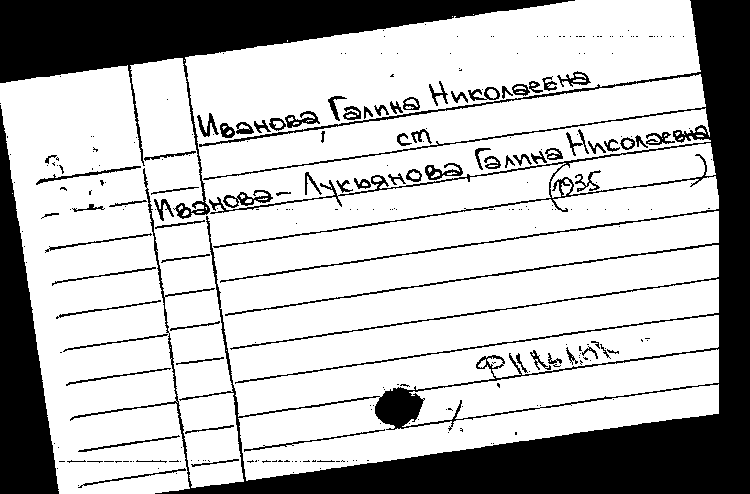 Иванова, Галина Николаевна.
ст.
Иванова - Лукьянова, Галина Николаевна
(1935 )